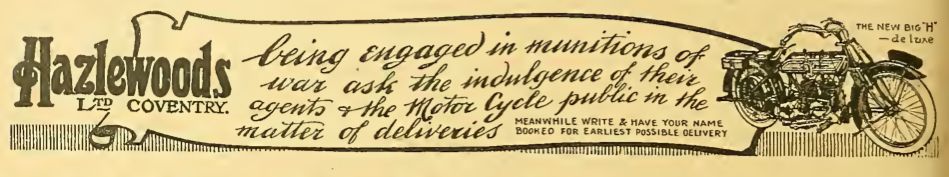 Hazlewoods
LTD COVENTRY.
being engaged in munitions of
war ask the indulgence of their
agents & the Motor Cycle public in the
matter of deliveries
MEANWHILE WRITE & HAVE YOUR NAME
BOOKED FOR EARLIEST POSSIBLE DELIVERY
THE NEW BIG "H"
— de luxe